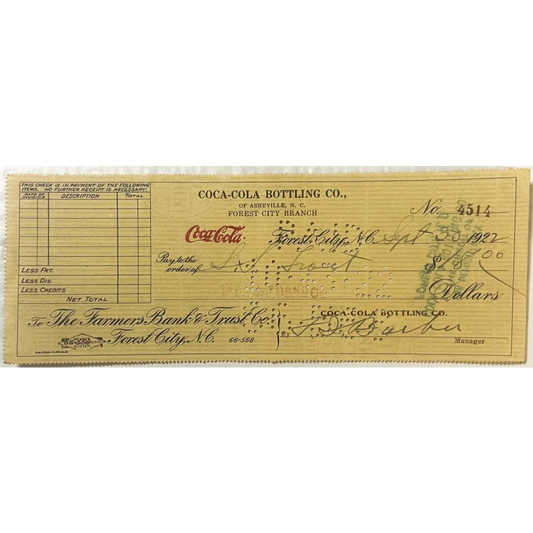 THIS CHECK IS IN PAYMENT OF THE FOLLOWING
ITEMS. NO FURTHER RECEIPT IS NECESSARY.
DATE OF INVOICE DESCRIPTION TOTAL
LESS FRT.
LESS DIS.
LESS CREDITS
NET TOTAL
COCA-COLA BOTTLING CO.,
OF ASHEVILLE, N. C.
FOREST CITY BRANCH
No. 4514
Coca-Cola
Forest City, N.C. Sept 30 1922
Pay to the
order of
$
Dollars
To The Farmers Bank & Trust Co.
Forest City, N.C. 66-568
COCA-COLA BOTTLING CO.
Manager